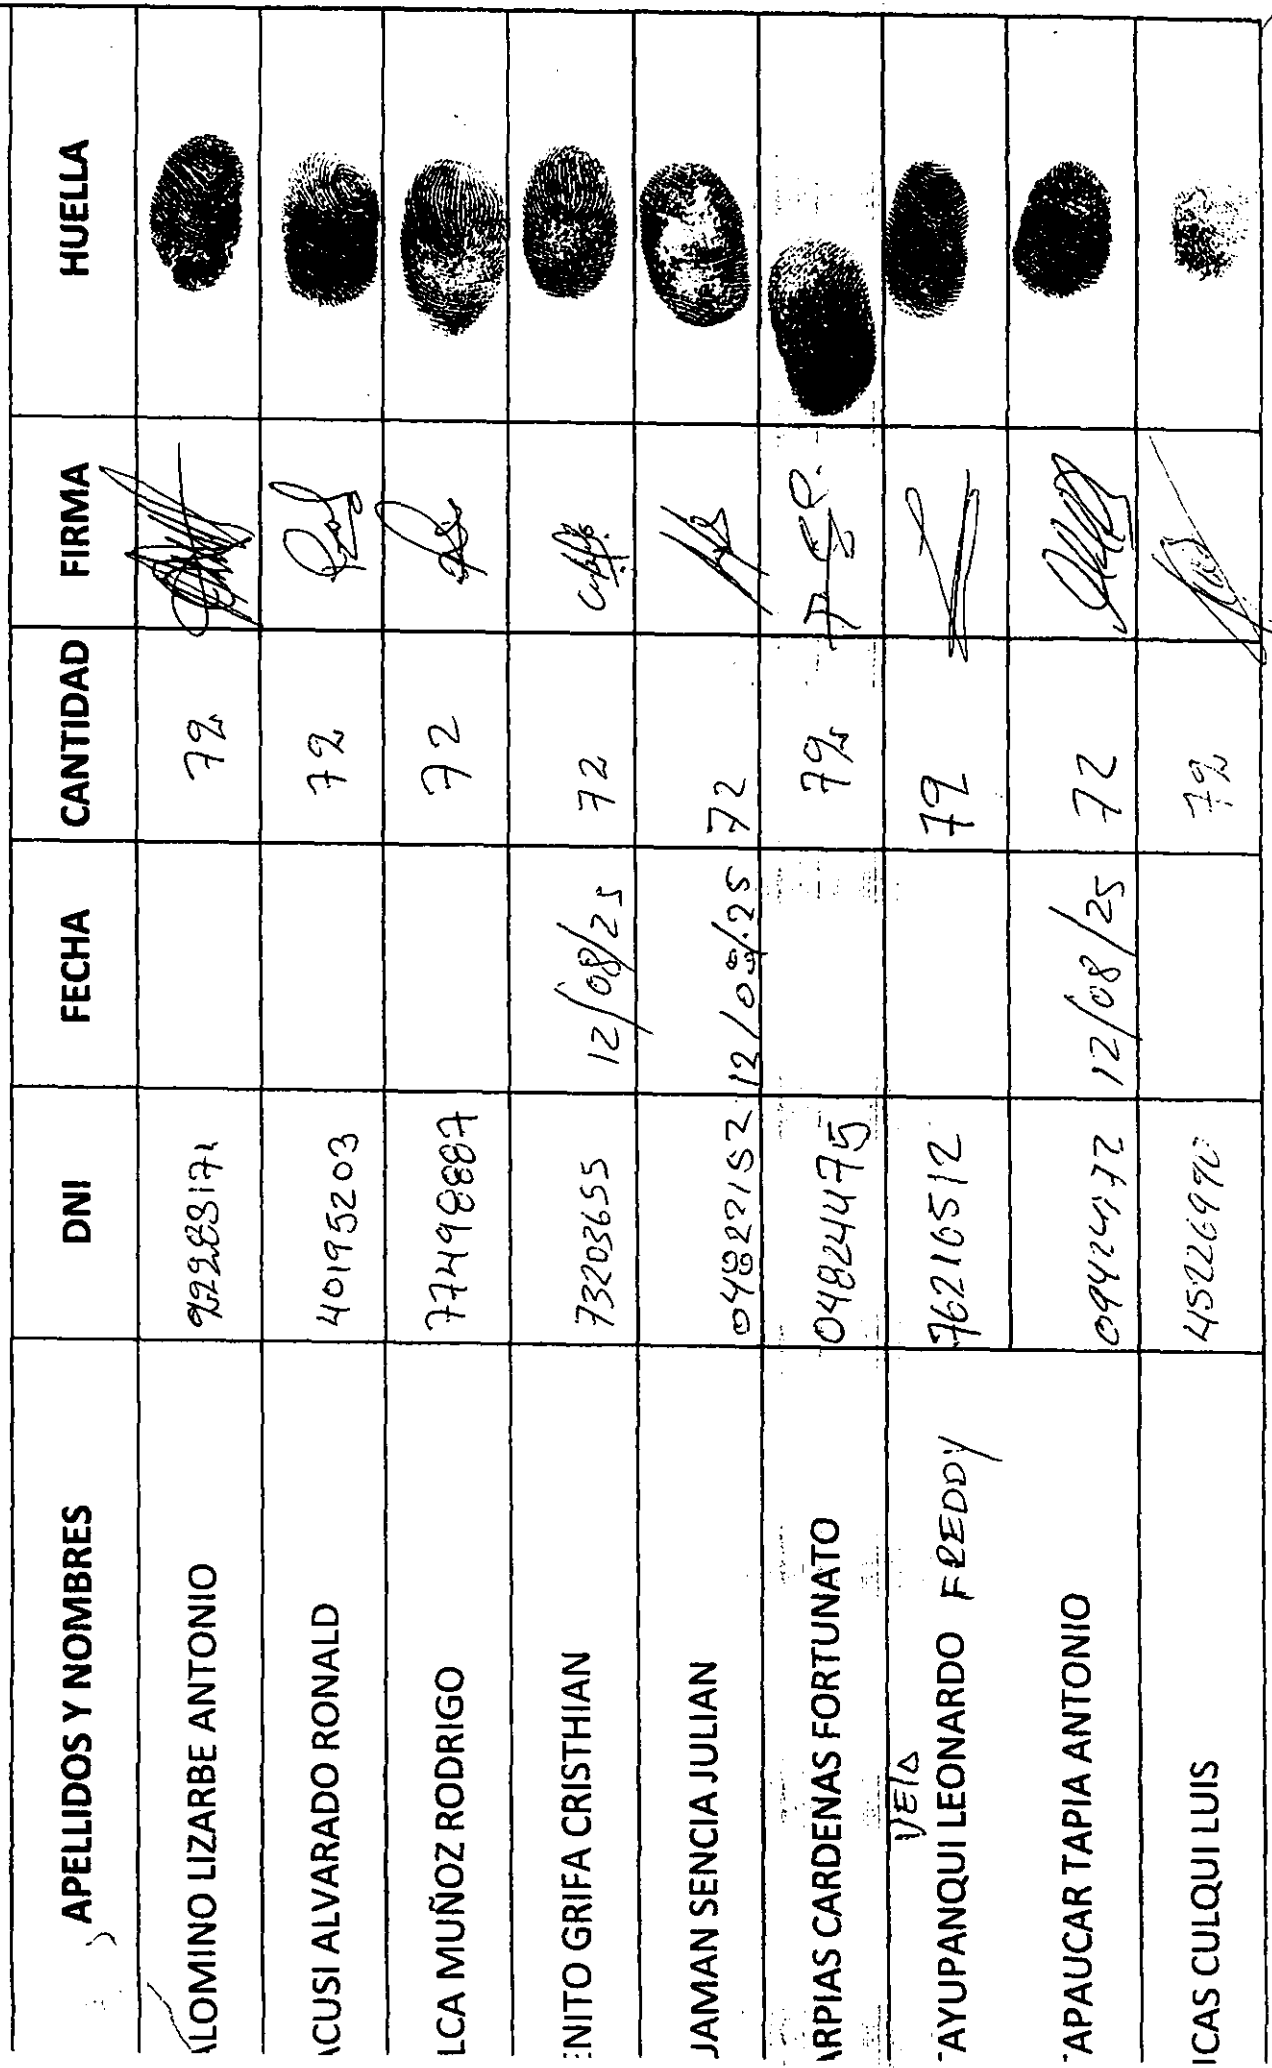 APELLIDOS Y NOMBRES DNI FECHA CANTIDAD FIRMA HUELLA
ALOMINO LIZARBE ANTONIO 72
ACUSI ALVARADO RONALD 40195203 72
LCA MUÑOZ RODRIGO 77498887 72
ENITO GRIFA CRISTHIAN 73203655 12/08/25 72
JAMAN SENCIA JULIAN 04822152 12/08/25 72
ARPIAS CARDENAS FORTUNATO 04824475 72
TAYUPANQUI LEONARDO FREDDY 76216512 72
APAUCAR TAPIA ANTONIO 12/08/25 72
ICAS CULQUI LUIS 72